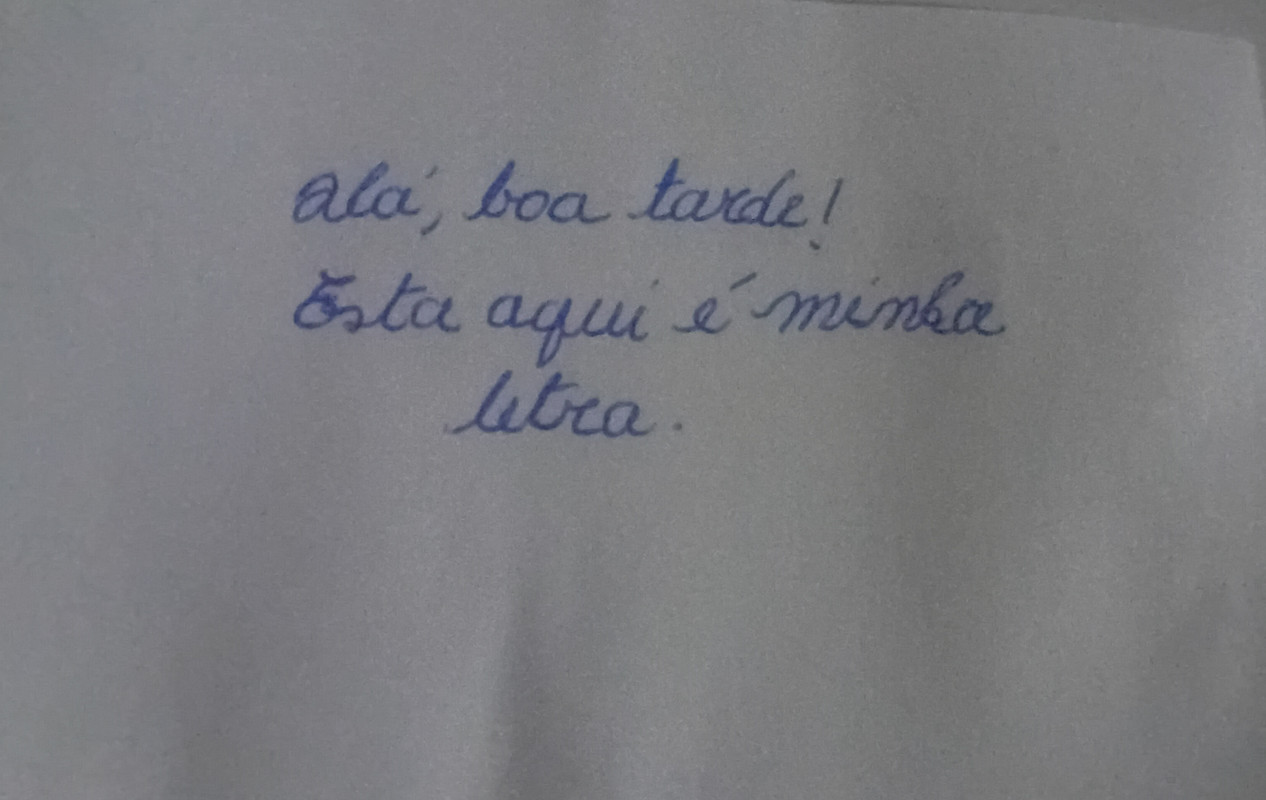 Olá, boa tarde!
Esta aqui é minha
letra.